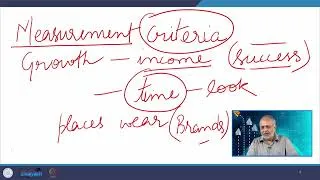 Measurement Criteria
Growth — income (success)
— Time — look
places wear (Brands)
swayam